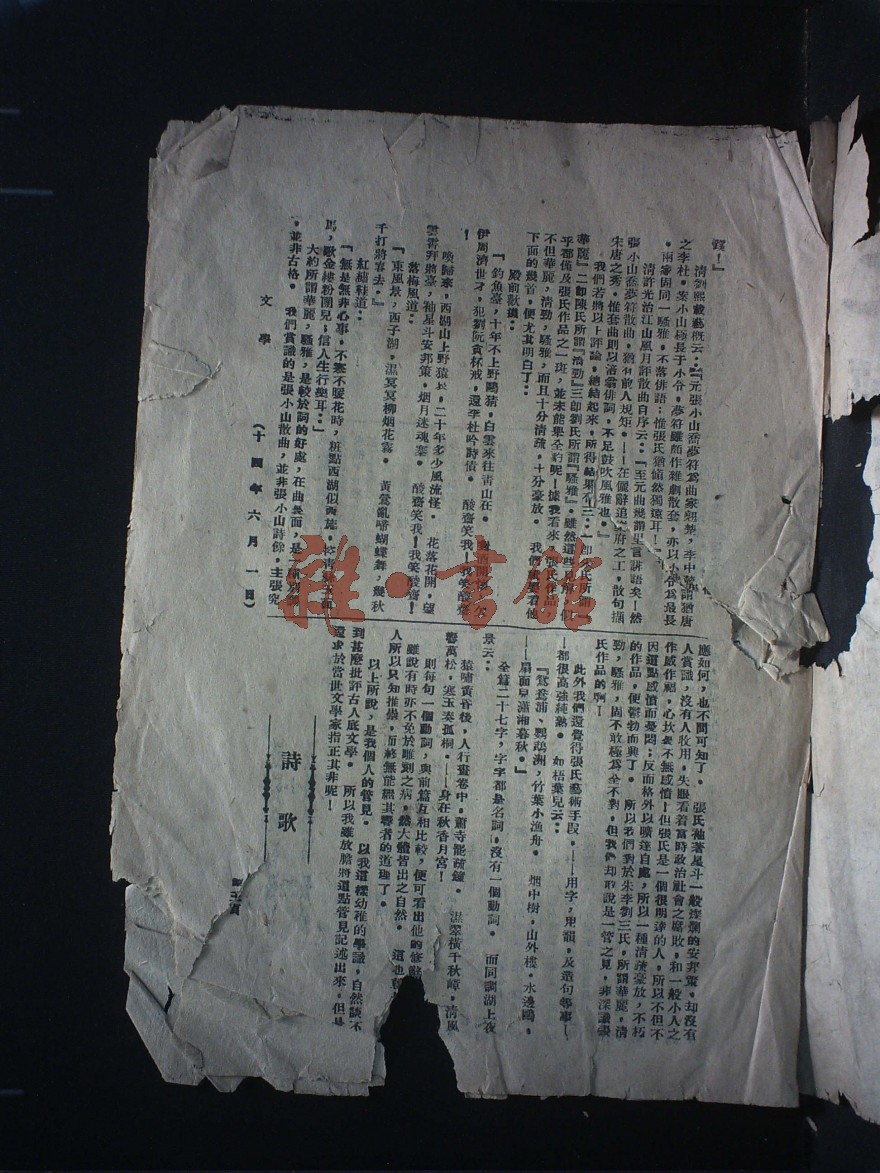 錢！』
清劉熙載藝概云：『元張小山喬夢符為曲家翹楚，李中麓謂猶唐
之李杜。案小山極長于小令。夢符雖頗作雜劇散套，亦以小令為最長
。兩家固同一騷雅，不落俳語；惟張氏猶翛然獨遠耳！』
清許光治江山風月許散曲自序云：『至元曲幾謂里言誹語矣！然
張小山喬夢符散曲，猶有前人規矩。——在儷辭追樂府之工，散句擷
宋唐之秀。惟套曲則以洛翁俳詞，不足鼓吹風雅也。』
我們若將以上評論，總結起來，所得結果有三：
華麗』二即陳氏所謂『清勁』三即劉氏所謂『騷雅』。雖然這些見解，個
乎都僅及張氏作品之一斑，並未能畢全豹呢！據我看來，張氏作品
不但華麗，清勁，騷雅，而且十分清疏，十分豪放。我們先看他
下面的幾首，便尤其明白了：
殿前歡調：
『釣魚臺，十年不上野鷗猜，白雲來往青山在。對酒開懷，欠
伊周濟世才，犯劉阮貪杯戒，還李杜吟詩債。酸齋笑我！我笑酸齋
！
喚歸來，西湖山上野猿哀，二十年多少風流怪。花落花開，望
雲霄拜將臺，袖星斗安邦策。烟月迷魂寨。酸齋笑我！我笑酸齋！
落梅風道：
『東風景，西子湖，濕冥冥柳烟花霧。黃鶯亂啼蝴蝶舞，幾秋
千打將春去。』
紅繡鞋道：
『無是無非心事，不寒不暖花時，粧點西湖似西施。控青絲玉面
馬，歌金縷粉團兒；信人生行樂耳：』
大約所謂華麗，騷雅，是較於詞的好處，在曲裏面，是
，並非古格。我們賞識的是張小山散曲，並非張小山詩餘。主張究
應如何，也不問可知了。張氏袖著星斗一般燦爛的安邦策，却沒有
人賞識，沒有人收用，失眼看着當時政治社會之腐敗，和一般小人之
作威作福，心坎裏不無感憤！但張氏是一個很明達的人，所以不但不
因這點感憤而憂悶；反而格外以曠達自處，所以一種清疏豪放，不朽
的作品，便鬱勃而興了。所以我們對於朱李劉三氏，所謂華麗，清
勁，騷雅，固不敢極爲全不對，但我們却敢說是一管之見，非深識張
氏作品的啊！
此外我們還覺得張氏藝術手段，——用字，用韻，及造句等事—
—都很高強純熟。如梧葉兒云：
『鴛鴦浦、鸚鵡洲，竹葉小漁舟。烟中樹，山外樓。水邊鷗。
扇面兒瀟湘暮秋。』
全篇二十七字，字字都是名詞，沒有一個動詞。而同調湖上夜
景云：
猿嘯黃昏後，人行畫卷中。蕭寺罷疏鐘。濕翠橫千秋嶂，清風
響萬松，寒玉奏孤桐。——身在秋香月宮！
則每句一個動詞，與前篇互相比較，便可看出他的修
雖說有時亦不免於雕刻之病，然大體皆出之自然。這也
人所以只知推崇，而終無能繼其響者的道理了。
以上所說，是我個人的管見。以我這樣幼稚的學識，自然談不
到甚麼批評古人底文學。所以我雖放膽將這點管見記述出來，但是
還求於當世文學家指正其非呢！
詩歌
文學
（十四年六月一日）